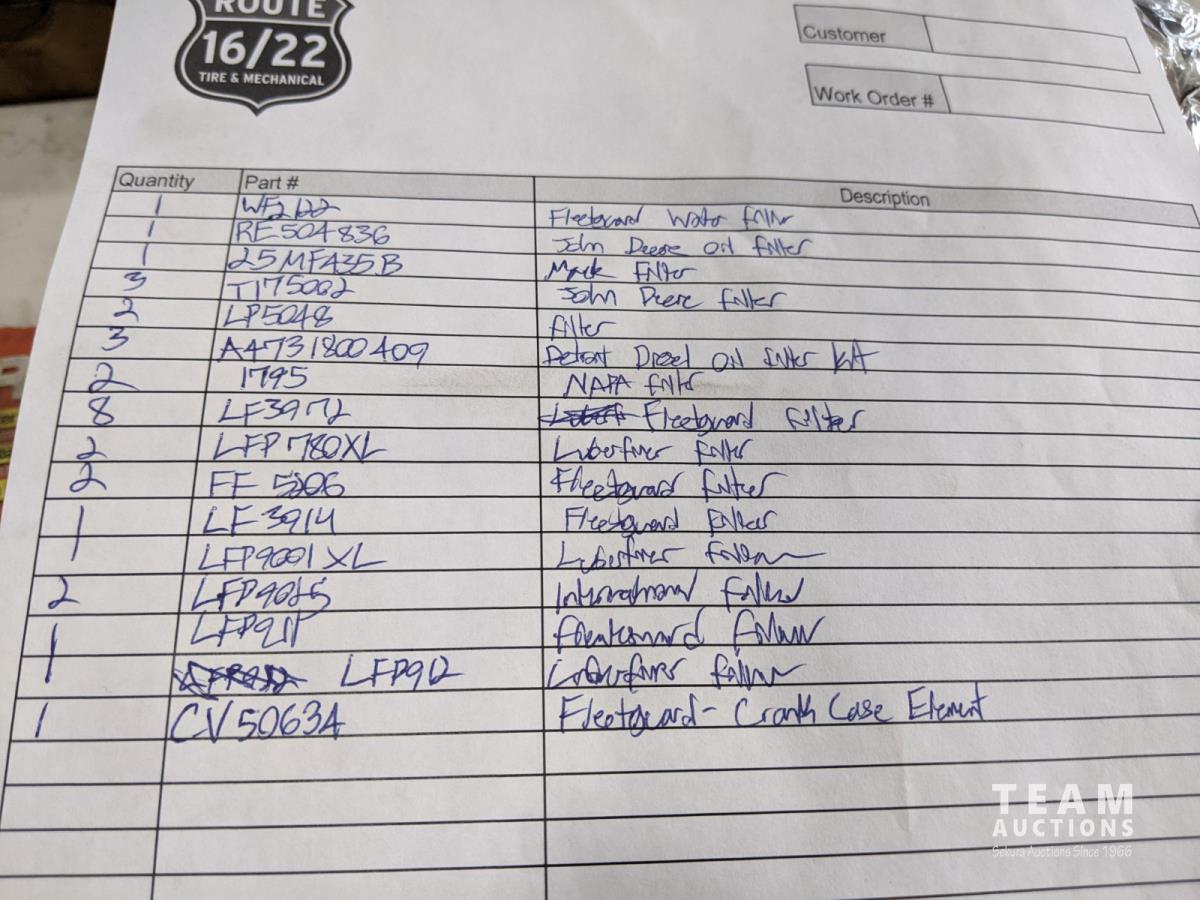 ROUTE
16/22
TIRE & MECHANICAL
Customer
Work Order #
Quantity Part # Description
1 WF2122 Fleetguard Water filter
1 RE504836 John Deere oil filter
1 25MF435B Mack Filter
3 T175002 John Deere filter
2 LP5048 filter
3 A4731800409 Detroit Diesel Oil filter kit
2 1795 NAPA filter
8 LF3972 Fleetguard filter
2 LFP780XL Luberfiner filter
2 FF 5206 Fleetguard filter
1 LF3914 Fleetguard filter
1 LFP9001XL Luberfiner filter
2 LFP9025 International Filter
1 LFP911 filter
1 LFP912 Luberfiner filter
1 CV50634 Fleetguard - Crank Case Element
TEAM
AUCTIONS
Sekura Auctions Since 1966